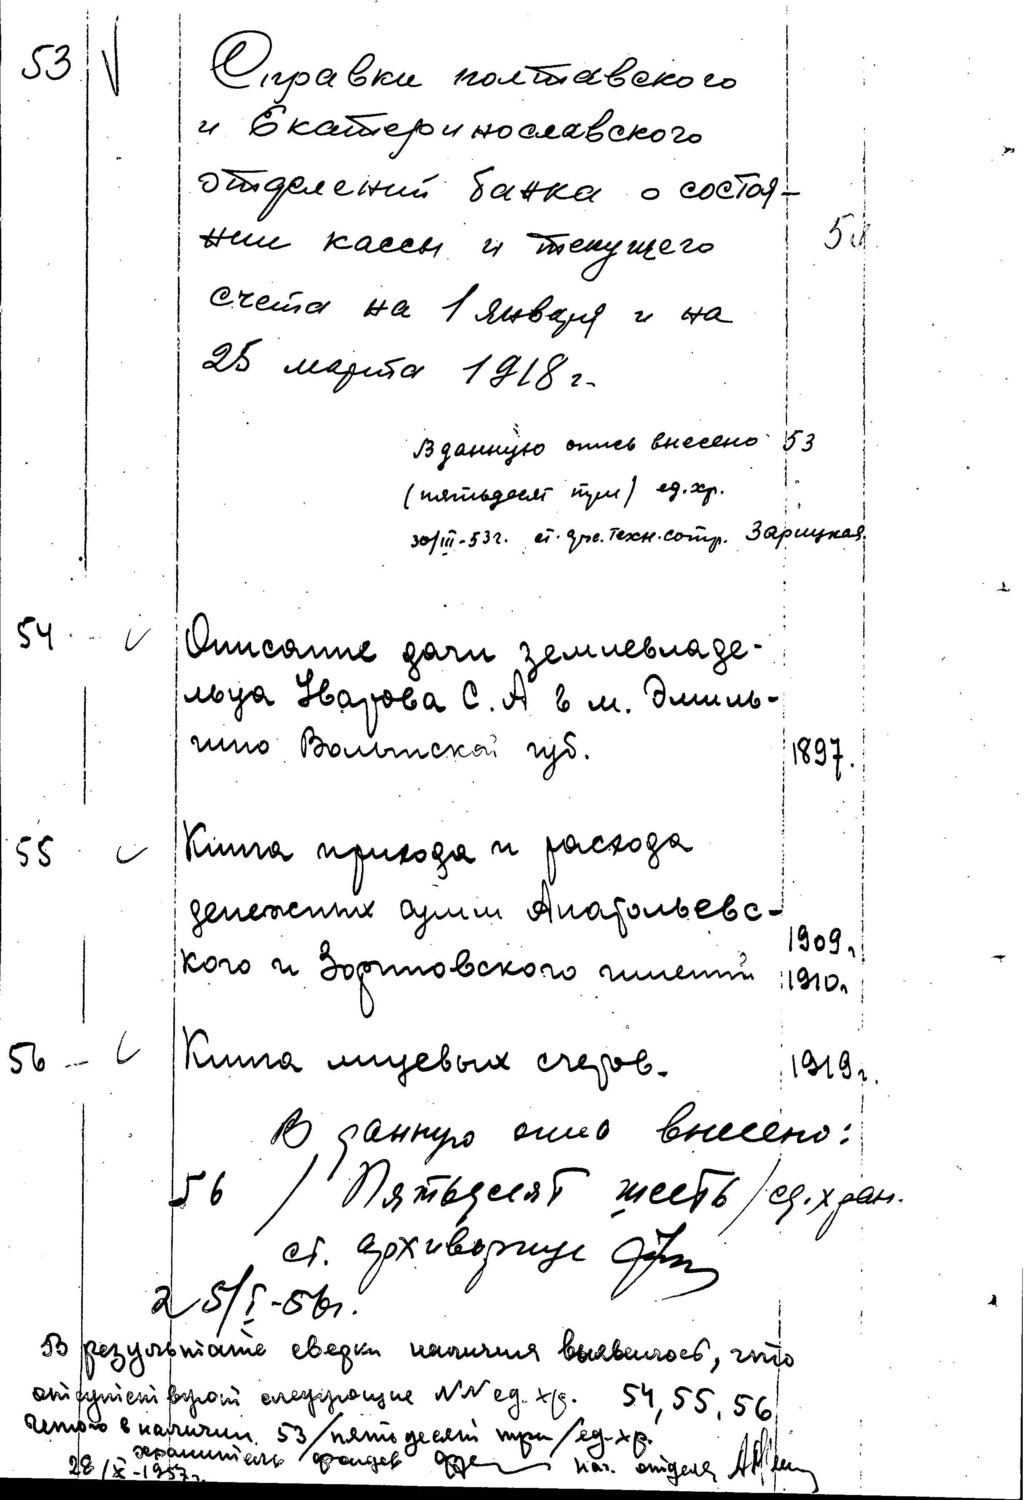 53 Справки полтавского
и Екатеринославского
отделений банка о состоя-
нии кассы и текущего
счета на 1 января и на
25 марта 1918 г.
В данную опись внесено 53
(пятьдесят три) ед. хр.
30/III-53г. ст. техн. сотр. Зарицкая
54 Описание дачи землевладе-
льца Уварова С. А в м. Эмиль-
чино Волынской губ. 1897.
55 Книга прихода и расхода
денежных сумм Анатольевс-
кого и Зорянтовского имений 1909г.
1910г.
56 Книга лицевых счетов. 1919г.
В данную опись внесено:
56 / Пятьдесят шесть / ед. хран.
ст. архивариус
25/I-56г.
В результате сверки наличия выявилось, что
отсутствуют следующие NN ед. хр. 54, 55, 56
Итого в наличии 53 /пятьдесят три/ ед. хр.
хранитель фондов нач. отдела
28/X-1957г.